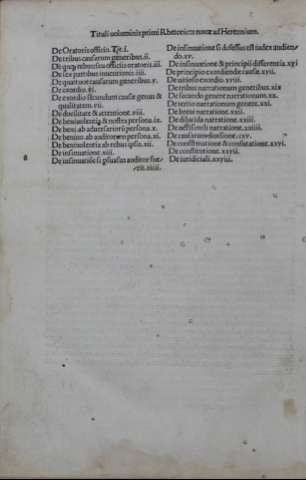 Tituli uoluminis primi Rhetoricæ nouæ ad Herennium.
De Oratoris officio. Tit. i.
De tribus causarum generibus. ii.
De rebus officiis oratoris. iii.
De sex partibus inuentionis. iiii.
De quattuor causarum generibus. v.
De exordio. vi.
De exordio secundum causæ genus &
qualitatem. vii.
De docilitate & attentione. viii.
De beniuolentia a nostra persona. ix.
De beni. ab aduersariorum persona. x.
De beniuo. ab auditorum persona. xi.
De beniuolentia ab rebus ipsis. xii.
De insinuatione. xiii.
De insinuatione si persuasus auditor fue-
rit. xiiii.
De insinuatione si defessus est iudex audien
do. xv.
De insinuationis & principii differentia. xvi
De principio exordiendæ causæ. xvii.
De uitioso exordio. xviii.
De tribus narrationum generibus. xix
De secundo genere narrationum. xx.
De tertio narrationum genere. xxi.
De breui narratione. xxii.
De dilucida narratione. xxiii.
De narratione. xxiiii.
De causarum diuisione. xxv.
De confirmatione & confutatione. xxvi.
De constitutione. xxvii.
De iuridiciali. xxviii.